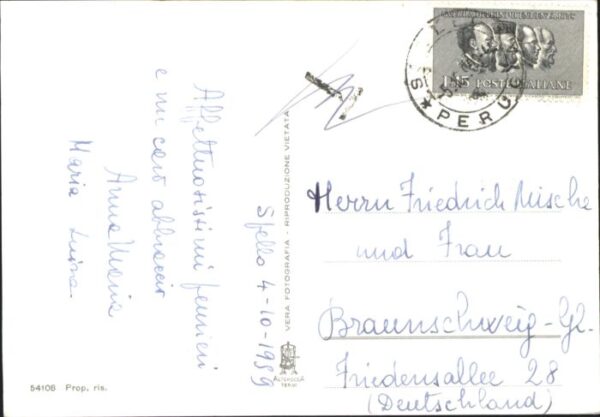 Affettuosissimi pensieri
e un caro abbraccio
Anna Maria
Maria Luisa
Spello 4-10-1959
VERA FOTOGRAFIA - RIPRODUZIONE VIETATA
ALTEROCCA
TERNI
54106 Prop. ris.
L.15 POSTE ITALIANE
PERUG
Herrn Friedrich Mische
und Frau
Braunschweig-Gl.
Friedensallee 28
(Deutschland)